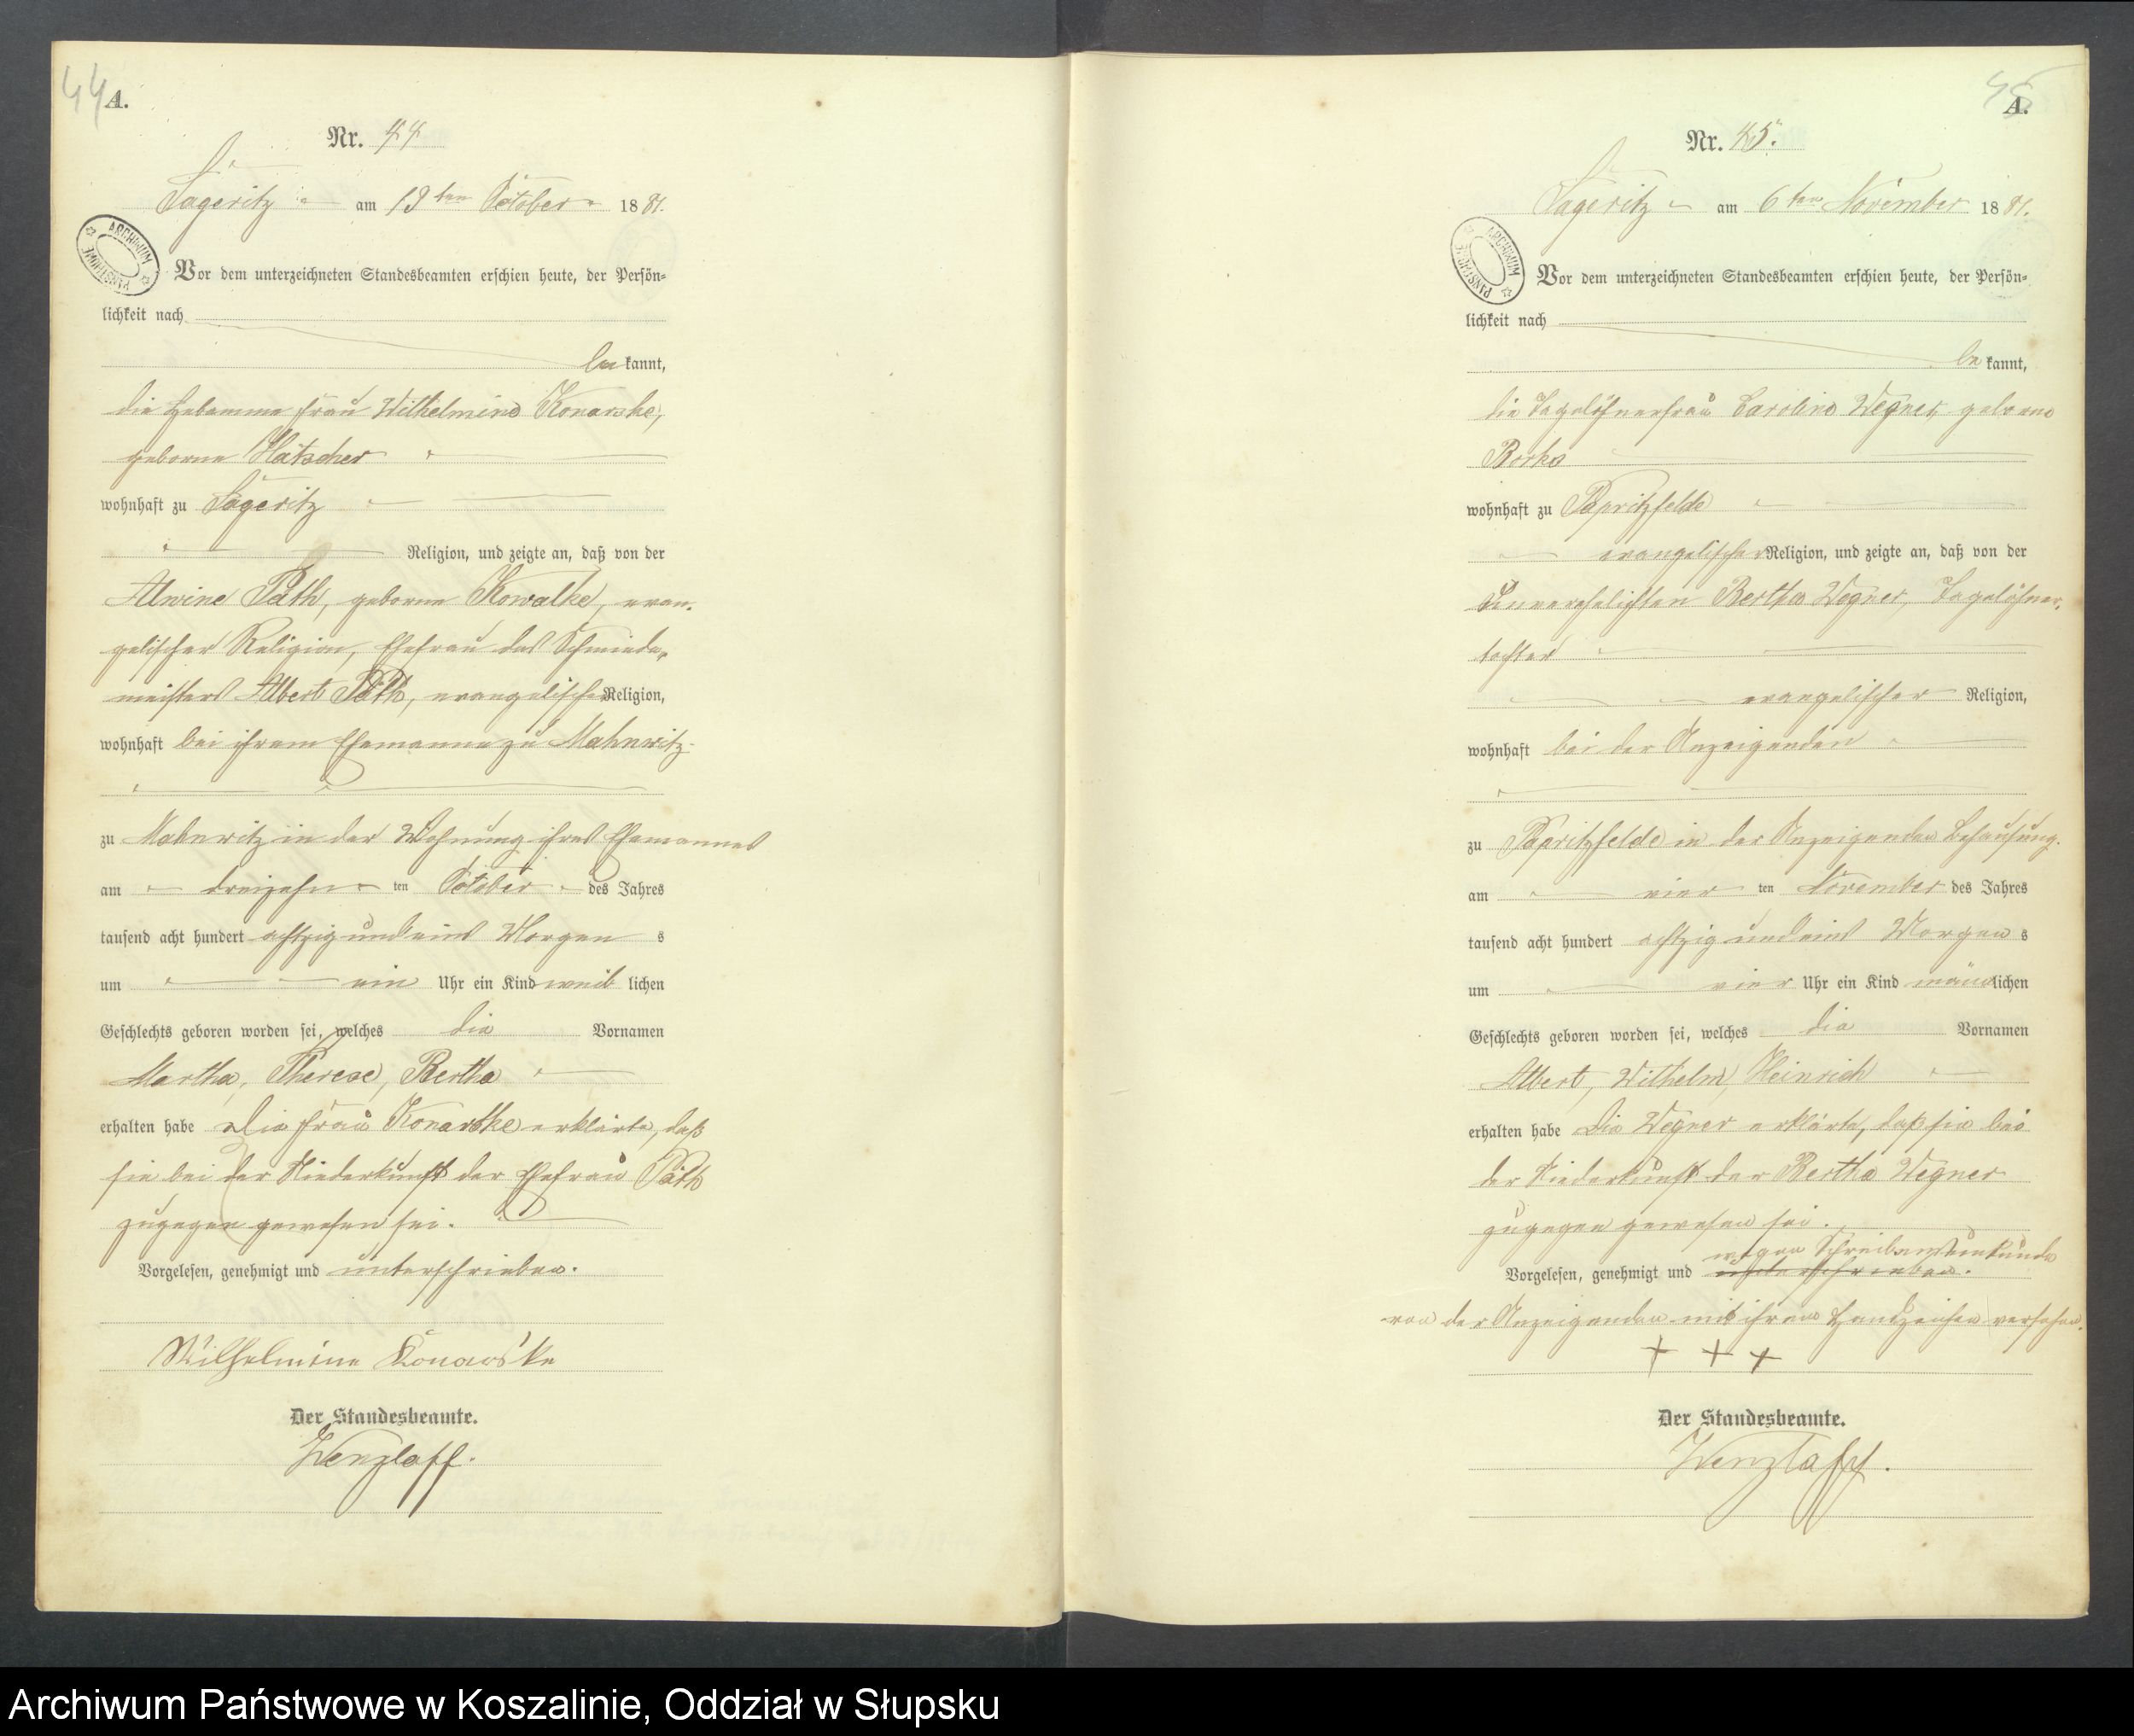 44
A.
Nr. 44
Sageritz am 13ten October 1881.
ARCHIWUM PAŃSTWOWE
Vor dem unterzeichneten Standesbeamten erschien heute, der Persön-
lichkeit nach
bekannt,
die Hebamme Frau Wilhelmine Konarske,
geborne Hatscher
wohnhaft zu Sageritz
Religion, und zeigte an, daß von der
Alwine Päth, geborne Kowalke, evan-
gelischer Religion, Ehefrau des Schmiede-
meisters Albert Päth, evangelischer Religion,
wohnhaft bei ihrem Ehemanne zu Mahnwitz
zu Mahnwitz in der Wohnung ihres Ehemannes
am dreizehn ten October des Jahres
tausend acht hundert achtzig und eins Morgens
um ein Uhr ein Kind weiblichen
Geschlechts geboren worden sei, welches die Vornamen
Martha, Therese, Bertha
erhalten habe Die Frau Konarske erklärte, daß
sie bei der Niederkunft der Ehefrau Päth
zugegen gewesen sei.
Vorgelesen, genehmigt und unterschrieben.
Wilhelmine Konarske
Der Standesbeamte.
Wenzlaff.
45
A.
Nr. 45.
Sageritz am 6ten November 1881.
ARCHIWUM PAŃSTWOWE
Vor dem unterzeichneten Standesbeamten erschien heute, der Persön-
lichkeit nach
bekannt,
die Tagelöhnerfrau Caroline Wegner, geborene
Borke
wohnhaft zu Papritzfelde
evangelischer Religion, und zeigte an, daß von der
Unverehelichten Bertha Wegner, Tagelöhner-
tochter
evangelischer Religion,
wohnhaft bei der Anzeigenden
zu Papritzfelde in der Anzeigenden Behausung.
am vier ten November des Jahres
tausend acht hundert achtzig und eins Morgens
um vier Uhr ein Kind männlichen
Geschlechts geboren worden sei, welches die Vornamen
Albert, Wilhelm, Heinrich
erhalten habe Die Wegner erklärte, daß sie bei
der Niederkunft der Bertha Wegner
zugegen gewesen sei.
wegen Schreibensunkunde
Vorgelesen, genehmigt und unterschrieben.
von der Anzeigenden mit ihrem Handzeichen versehen.
+ + +
Der Standesbeamte.
Wenzlaff.
Archiwum Państwowe w Koszalinie, Oddział w Słupsku